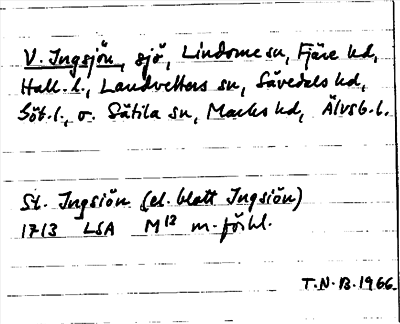 V. Ingsjön, sjö, Lindome sn, Fjäre hd,
Hall. l., Landvetters sn, Sävedals hd,
Göt. l., o. Sätila sn, Marks hd, Älvsb. l.
St. Ingsiön (el. blott Ingsiön)
1713 LSA M12 m. förhl.
T.N.B. 1966.